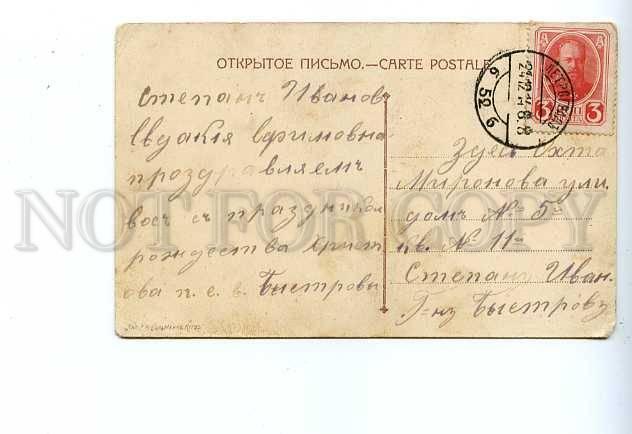 ОТКРЫТОЕ ПИСЬМО.—CARTE POSTALE
Степанъ Ивановъ
Евдакія Ефимовна
проздравляемъ
васъ съ празднико
рождества христ
ова п. с. в. Быстровы
Здесь Охта
Миронова ули.
домъ № 5й
Кв. № 11й
Степану Иван.
Г-ну Быстрову
ПЕТРОГРАДЪ
24 12
6 52 6
3 3
NOT FOR COPY